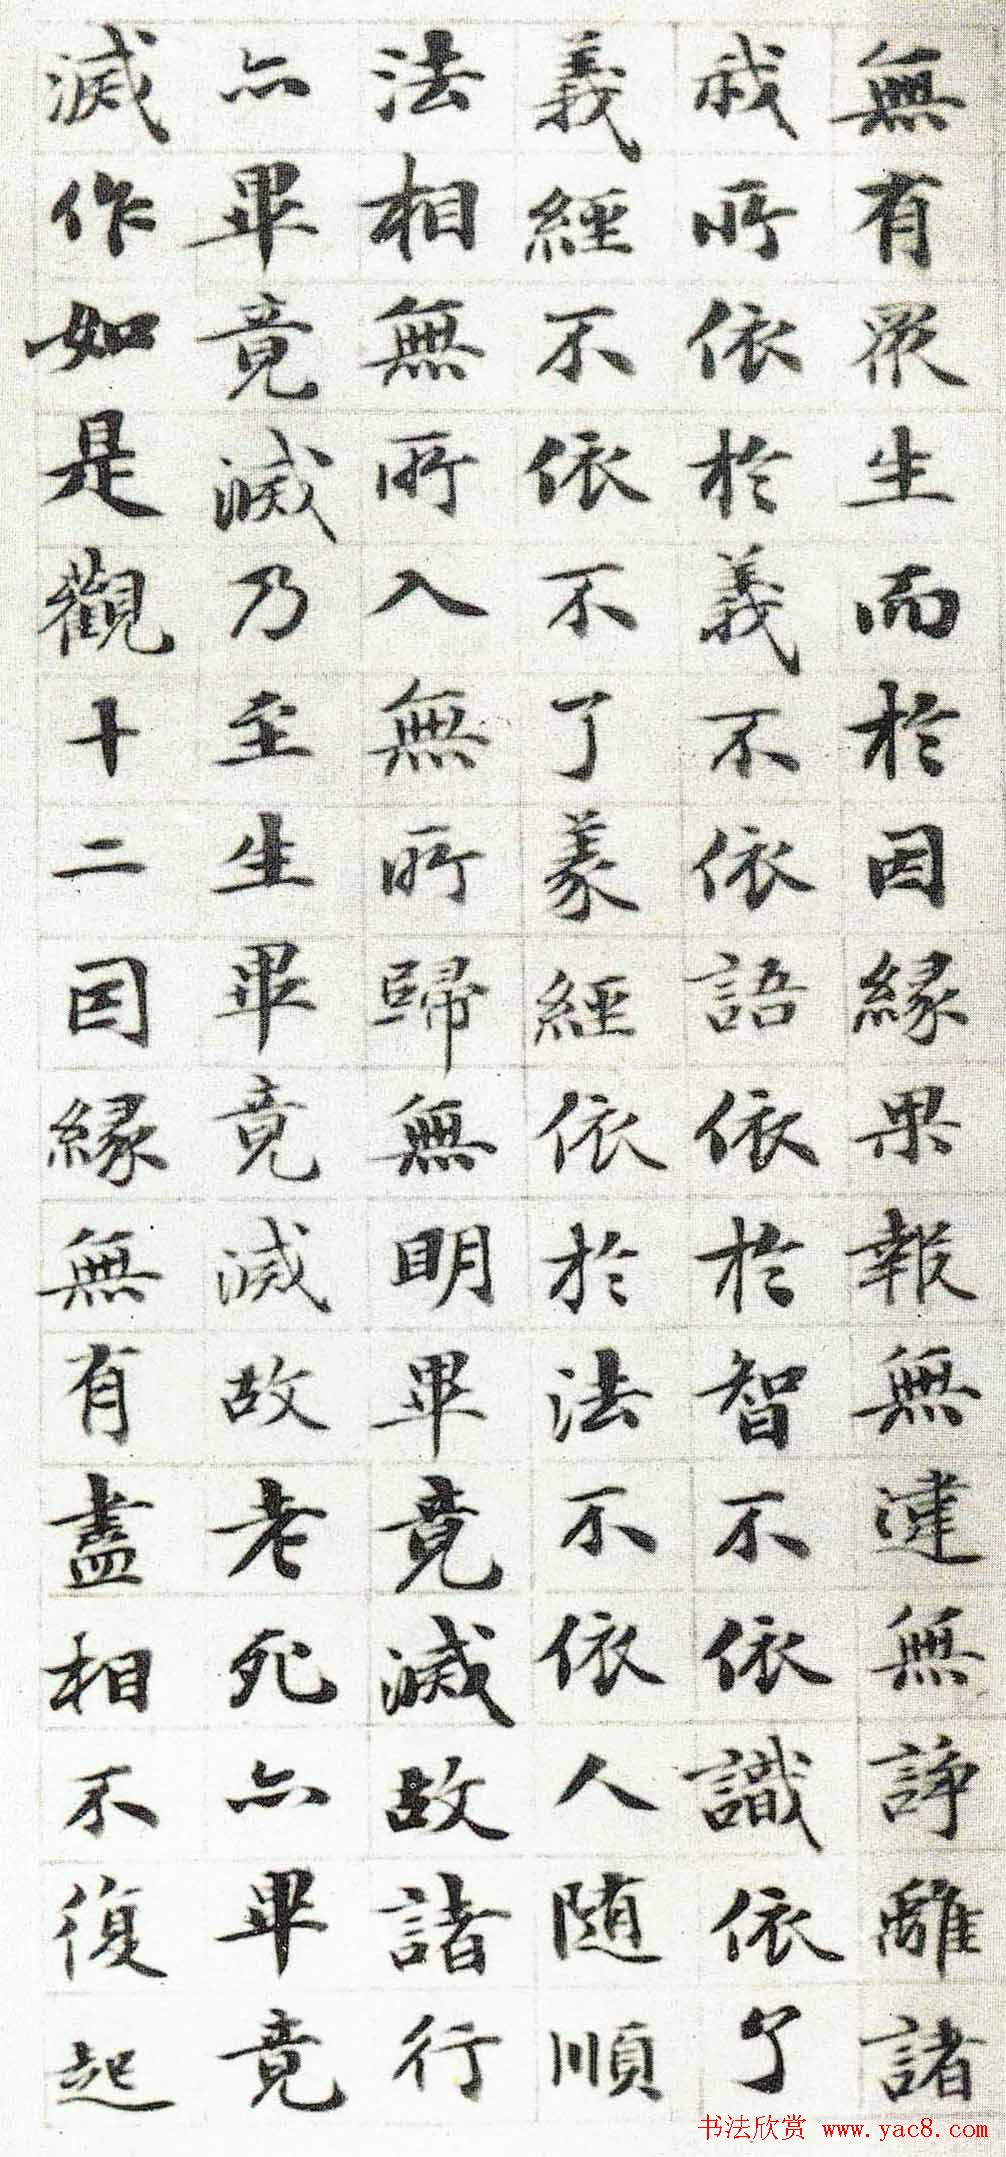 無有衆生而於因緣果報無違無諍離諸
我所依於義不依語依於智不依識依了
義經不依不了義經依於法不依人随順
法相無所入無所歸無明畢竟滅故諸行
亦畢竟滅乃至生畢竟滅故老死亦畢竟
滅作如是觀十二因緣無有盡相不復起
书法欣赏 www.yac8.com